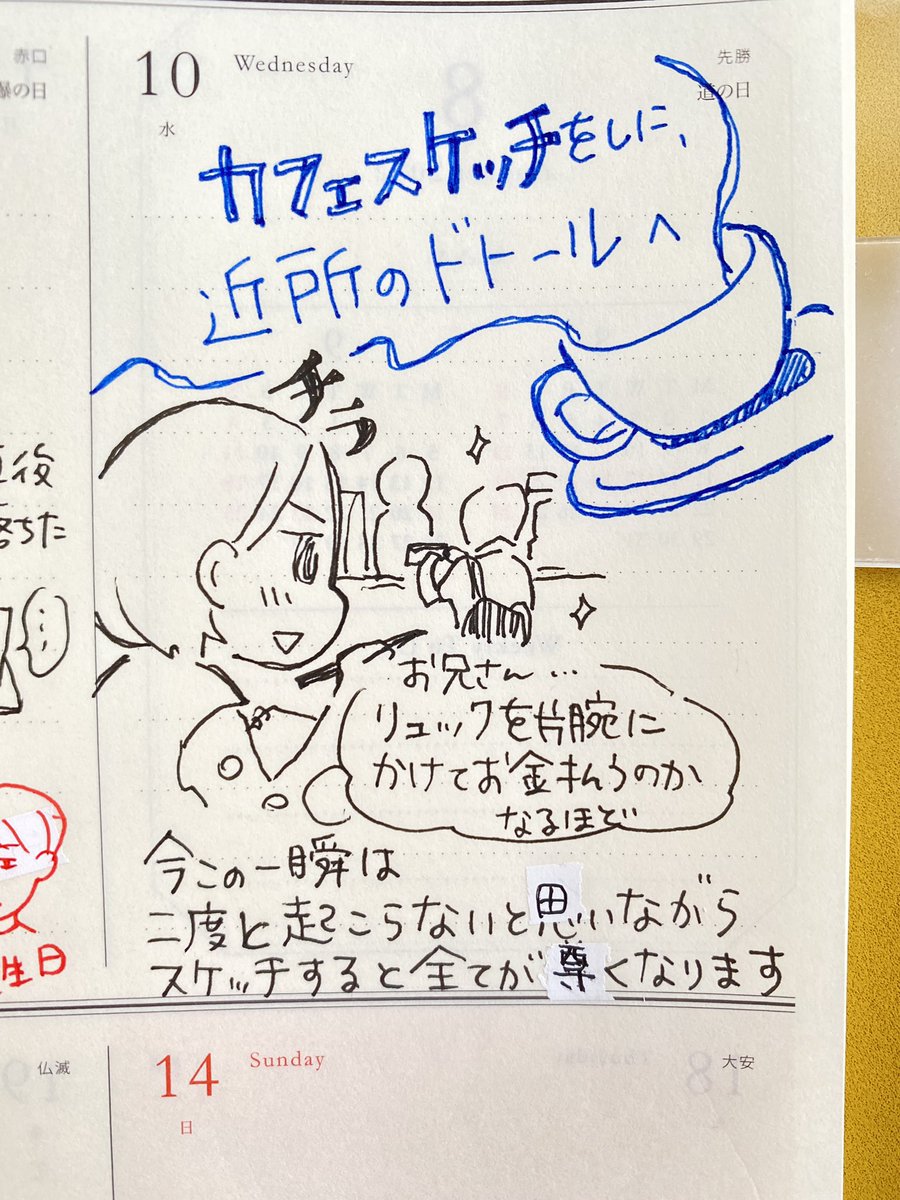 赤口
爆の日
10
Wednesday
水
先勝
道の日
カフェスケッチをしに、
近所のドトールへ
チラ
お兄さん…
リュックを片腕に
かけてお金払うのか
なるほど
今この一瞬は
二度と起こらないと思いながら
スケッチすると全てが尊くなります
直後
落ちた
生日
仏滅
14
Sunday
日
大安